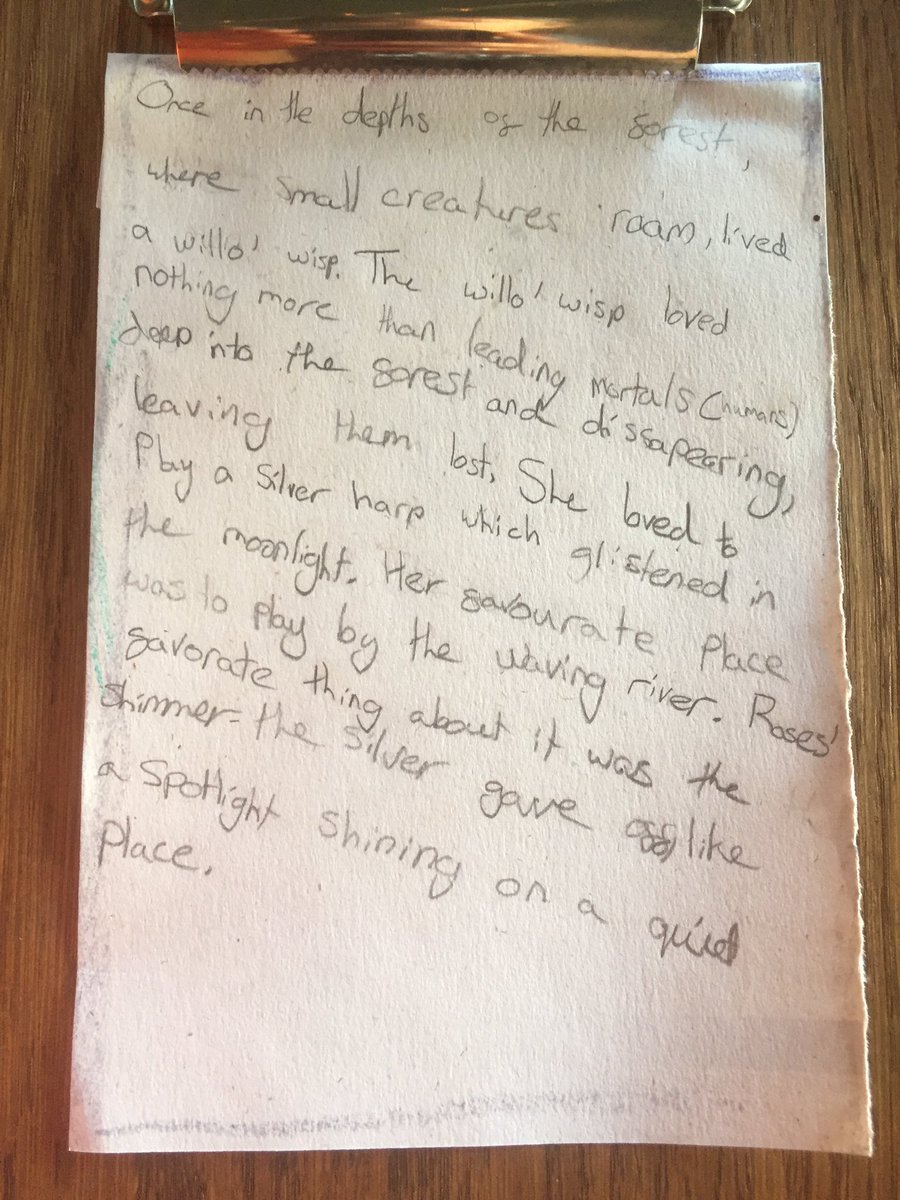 Once in the depths of the forest,
where small creatures roam, lived
a willo' wisp. The willo' wisp loved
nothing more than leading mortals (humans)
deep into the forest and dissapearing,
leaving them lost. She loved to
Play a silver harp which glistened in
the moonlight. Her favourate place
was to play by the waving river. Roses'
favorate thing about it was the
shimmer - the silver gave off, like
a spotlight shining on a quiet
place.